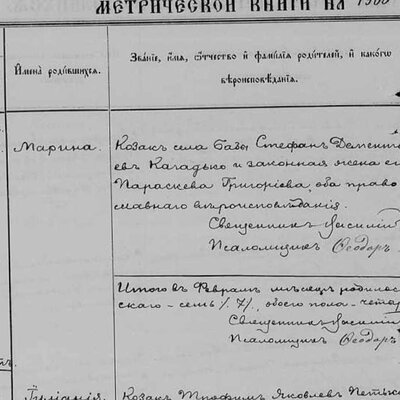 МЕТРИЧЕСКОЙ КНИГИ НА
Имена родившихся.
Званіе, имя, отчество и фамилія родителей, и какого
вѣроисповѣданія.
Марина.
Козакъ села Базы Стефанъ Дементі
евъ Кагадько и законная жена е
Параскева Григоріева, оба право
славнаго вѣроисповѣданія.
Священникъ Василій
Псаломщикъ Ѳеодоръ
Итого въ Февралѣ мѣсяцѣ родилось
скаго - семь /7/, обоего пола - четыр
Священникъ Василій
Псаломщикъ Ѳеодоръ
Іуліанія.
Козакъ Трофимъ Яковлевъ